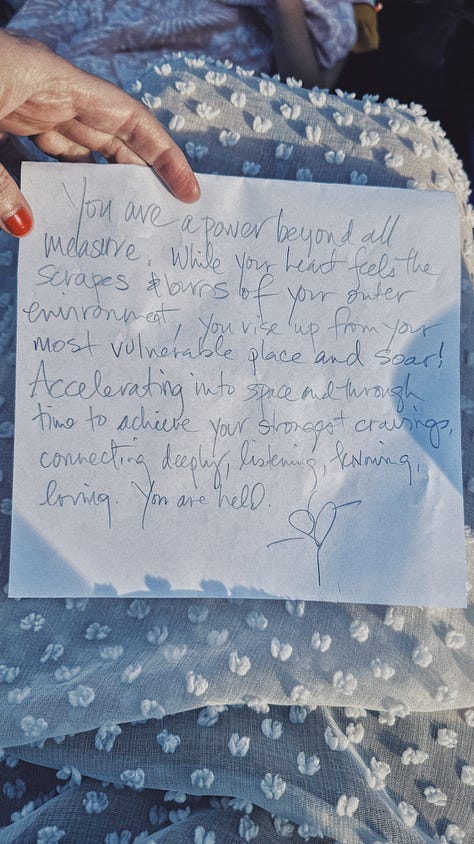 You are a power beyond all
measure. While your heart feels the
scrapes & burs of your outer
environment, you rise up from your
most vulnerable place and soar!
Accelerating into space and through
time to achieve your strongest cravings,
connecting deeply, listening,
loving. You are held.